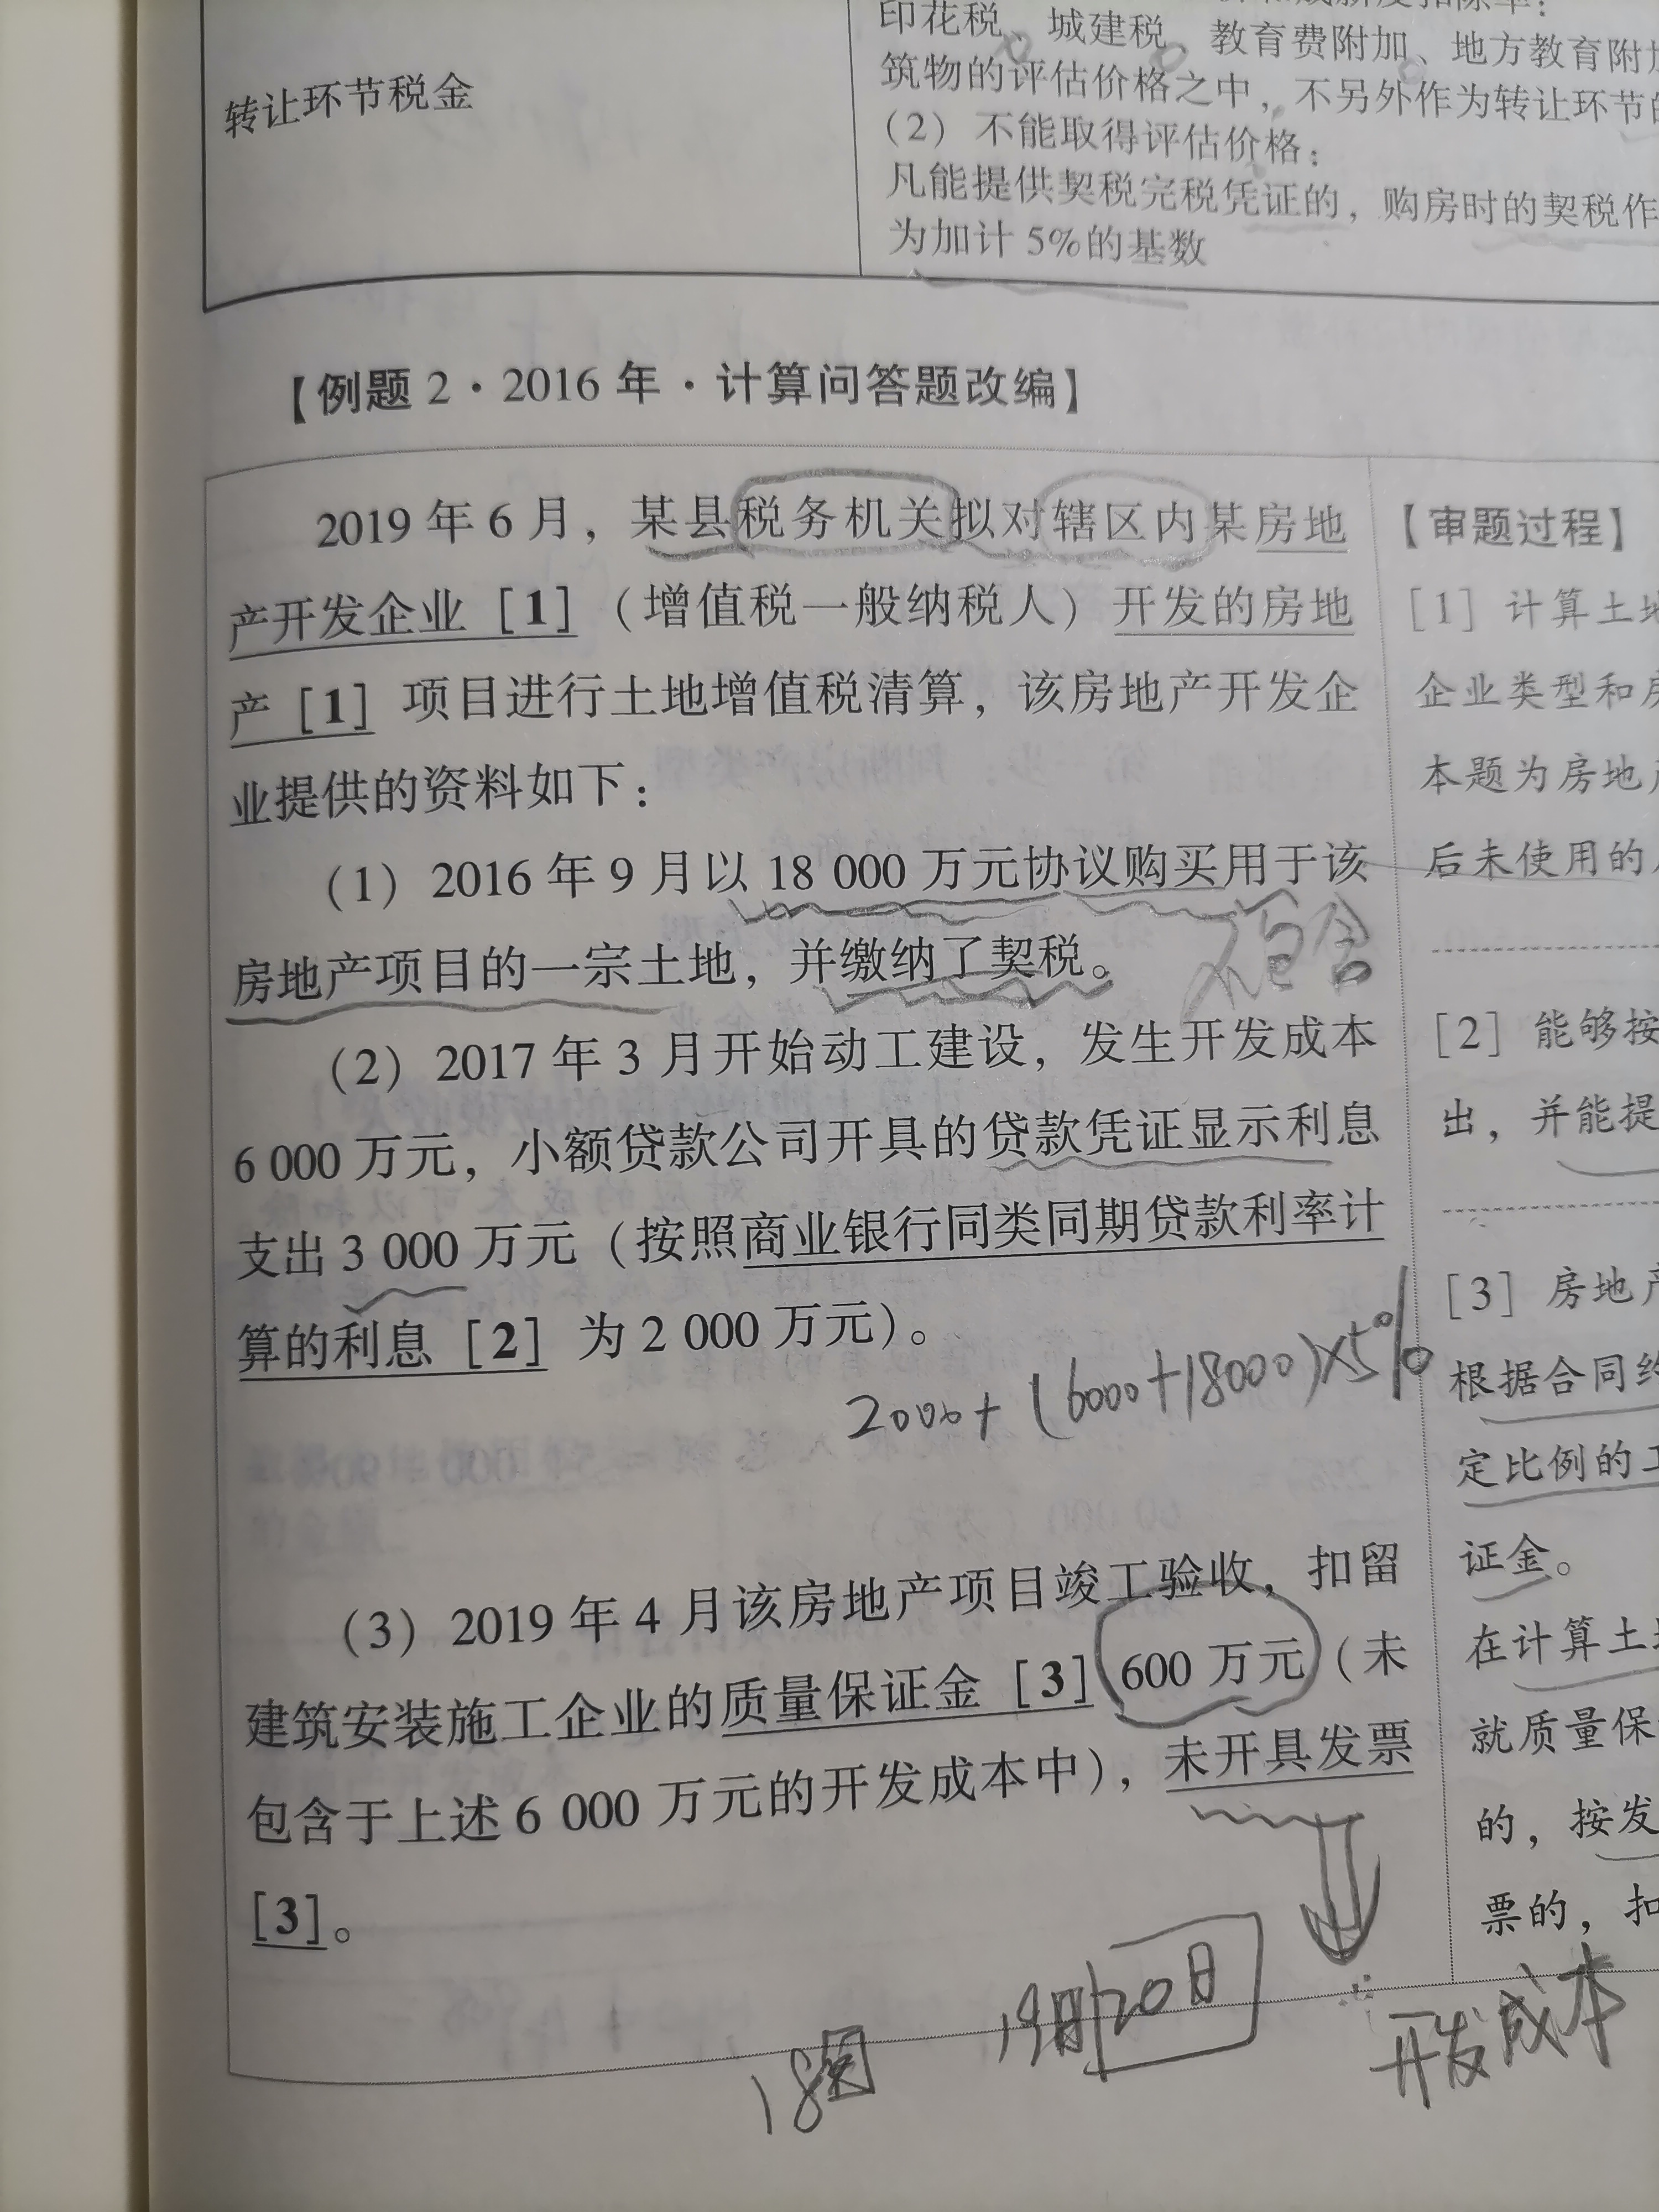 转让环节税金
印花税、城建税、教育费附加、地方教育附加
筑物的评估价格之中，不另外作为转让环节的
（2）不能取得评估价格：
凡能提供契税完税凭证的，购房时的契税作
为加计 5%的基数
【例题 2·2016 年·计算问答题改编】
2019 年 6 月，某县税务机关拟对辖区内某房地
产开发企业 [1]（增值税一般纳税人）开发的房地
产 [1] 项目进行土地增值税清算，该房地产开发企
业提供的资料如下：
（1）2016 年 9 月以 18 000 万元协议购买用于该
房地产项目的一宗土地，并缴纳了契税。
不包含
（2）2017 年 3 月开始动工建设，发生开发成本
6 000 万元，小额贷款公司开具的贷款凭证显示利息
支出 3 000 万元（按照商业银行同类同期贷款利率计
算的利息 [2] 为 2 000 万元）。
2000+（6000+18000)×5%
（3）2019 年 4 月该房地产项目竣工验收，扣留
建筑安装施工企业的质量保证金 [3] 600 万元（未
包含于上述 6 000 万元的开发成本中），未开具发票
[3]。
开发成本
【审题过程】
[1] 计算土地
企业类型和房
本题为房地产
后未使用的
[2] 能够按
出，并能提
[3] 房地产
根据合同约
定比例的工
证金。
在计算土地
就质量保
的，按发
票的，扣